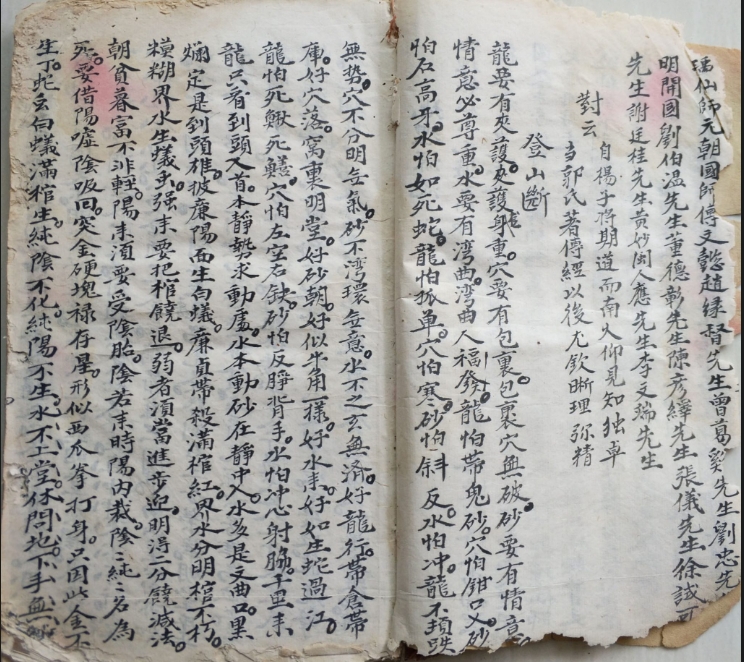 瑶仙師元朝國師傅文懿趙緣督先生曾葛奚先生劉忠先
明開國劉伯温先生董德彰先生陳彦繹先生張儀先生徐誠可
先生謝廷桂先生黄妙闽人應先生李文瑞先生
對云
自楊子将期道而南人仰見知独卓
当郭氏著傳經以後尤欽晰理弥精
登山斷
龍要有夾護夾護龍身重穴要有包裏包裏穴無破砂要有情意
情意必尊重水要有湾曲湾曲人福發龍怕帶鬼砂穴怕鉗口又砂
怕石高牙水怕如死蛇龍怕孤单穴怕寒砂怕斜反水怕冲龍不頓跌
無势穴不分明無氣砂不湾環無意水不之玄無済好龍行帶倉帶
庫好穴落窩裏明堂好砂朝好似牛角一樣好水来好如生蛇過江
龍怕死鰍死鱔穴怕左空右缺砂怕反睜背手水怕冲心射脇千里来
龍只看到頭入首本静势求動處水本動砂在静中入水多是文曲口黑
爛定是到頭碓披廉陽面生白蟻廉貞帶殺滿棺紅界水分明棺不朽
糢糊界水生蟻虫强来要把棺饒退弱者湏當進步迎明得二分饒减法
朝貧暮富不非輕陽来湏要受陰胎陰若来時陽内栽陰二純二名為
死要借陽嘘陰吸回突金硬塊禄存星形似西瓜拳打身只因此金不
生丁蛇玄白蟻滿棺生純陰不化純陽不生水不上堂休問地下手無